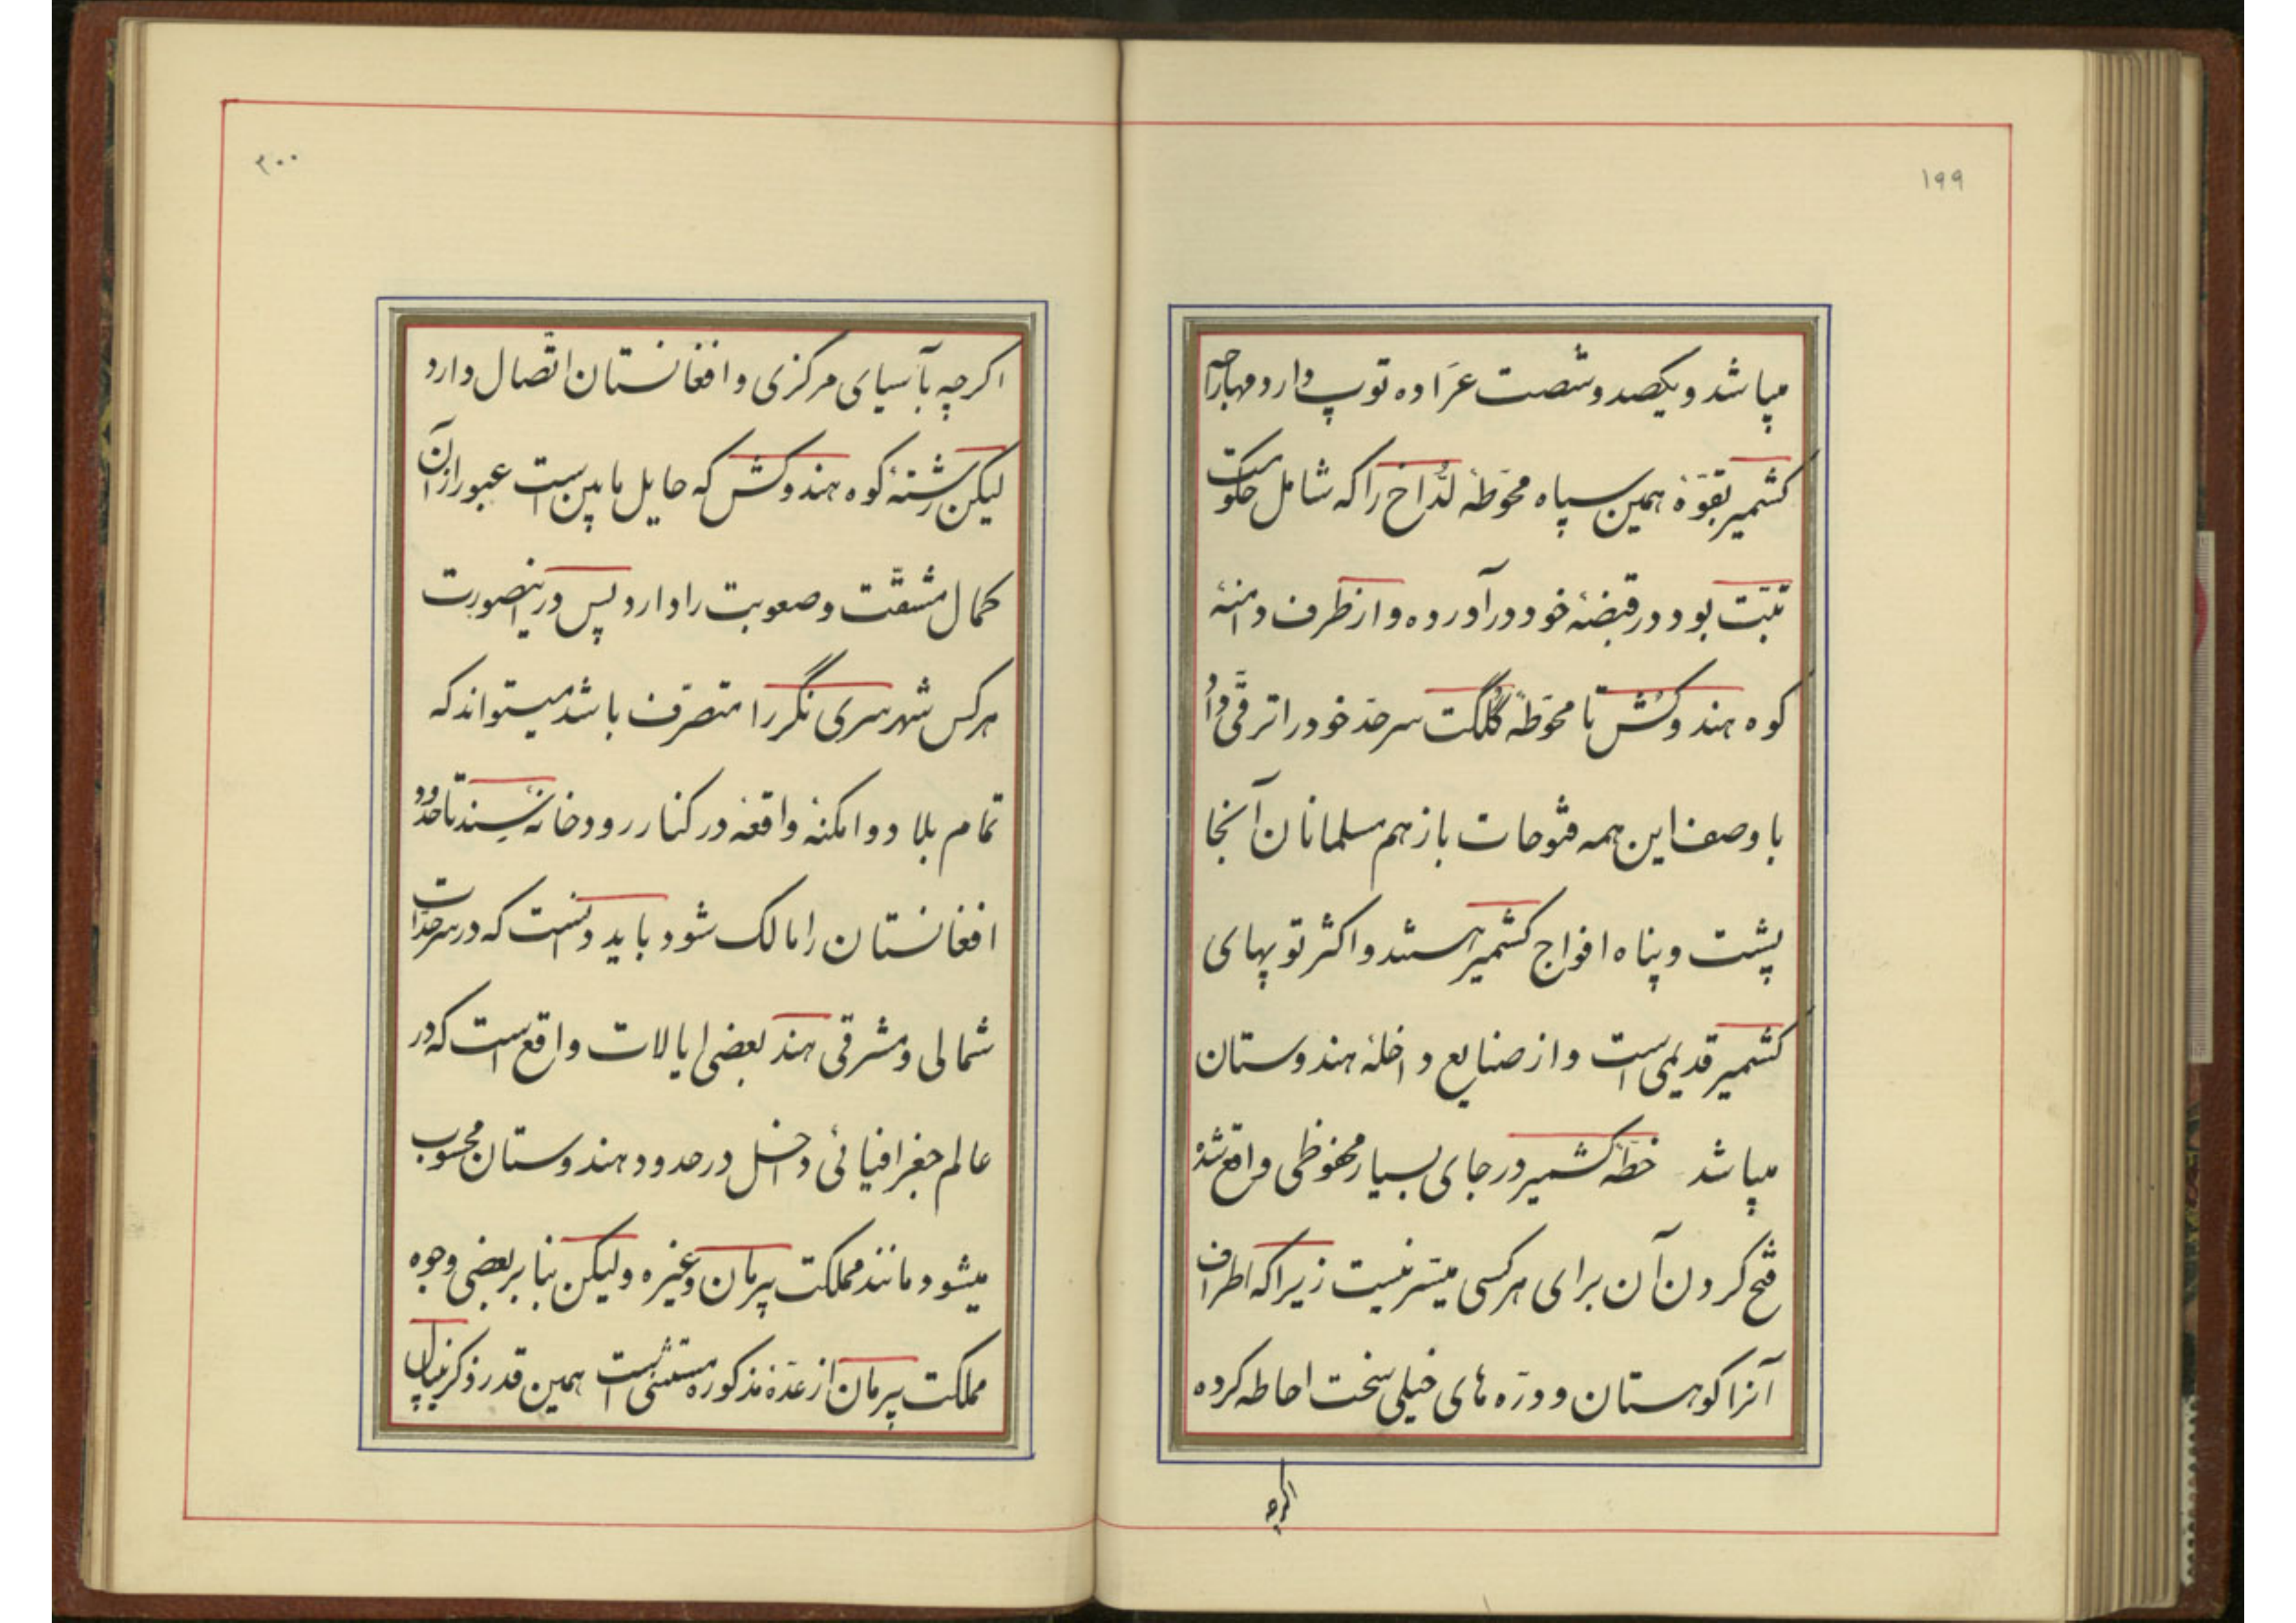 ۱۹۹
میباشد و یکصد و شصت عرّاده توپ دارد مهاراجه
کشمیر بقوّهٔ همین سپاه محوّطهٔ لدّاخ را که شامل حکومت
تبّت بود در قبضهٔ خود درآورده و از طرف دامنهٔ
کوه هندوکُش تا محوّطهٔ گلگت سرحدّ خود را ترقّی داد
با وصف این همه فتوحات باز هم مسلمانان آنجا
پشت و پناه افواج کشمیر هستند و اکثر توپهای
کشمیر قدیمی است و از صنایع داخلهٔ هندوستان
میباشد خطّهٔ کشمیر در جای بسیار محفوظی واقع شده
فتح کردن آن برای هر کسی میسّر نیست زیرا که اطراف
آنرا کوهستان و درّه های خیلی سخت احاطه کرده
اکرچه
۲۰۰
اکرچه بآسیای مرکزی و افغانستان اتّصال دارد
لیکن رشتهٔ کوه هندوکش که حایل مابین است عبور از آن
کمال مشقّت و صعوبت را دارد پس در اینصورت
هر کس شهر سری نگر را متصرّف باشد میتواند که
تمام بلاد و امکنهٔ واقعهٔ در کنار رودخانهٔ سند تا حدود
افغانستان را مالک شود باید دانست که در سرحدّات
شمالی و مشرقی هند بعضی ایالات واقع است که در
عالم جغرافیائی داخل در حدود هندوستان محسوب
میشود مانند مملکت پیرمان و غیره ولیکن بنا بر بعضی وجوه
مملکت پیرمان از عدّهٔ مذکوره مستثنی است همین قدر ذکر نیپال